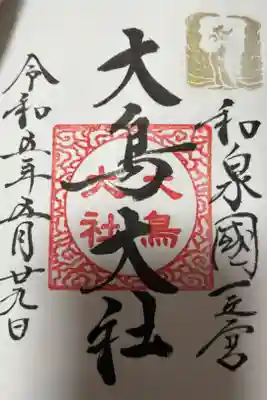 和泉國一之宮
大鳥大社
大鳥
大社
令和五年五月廿九日